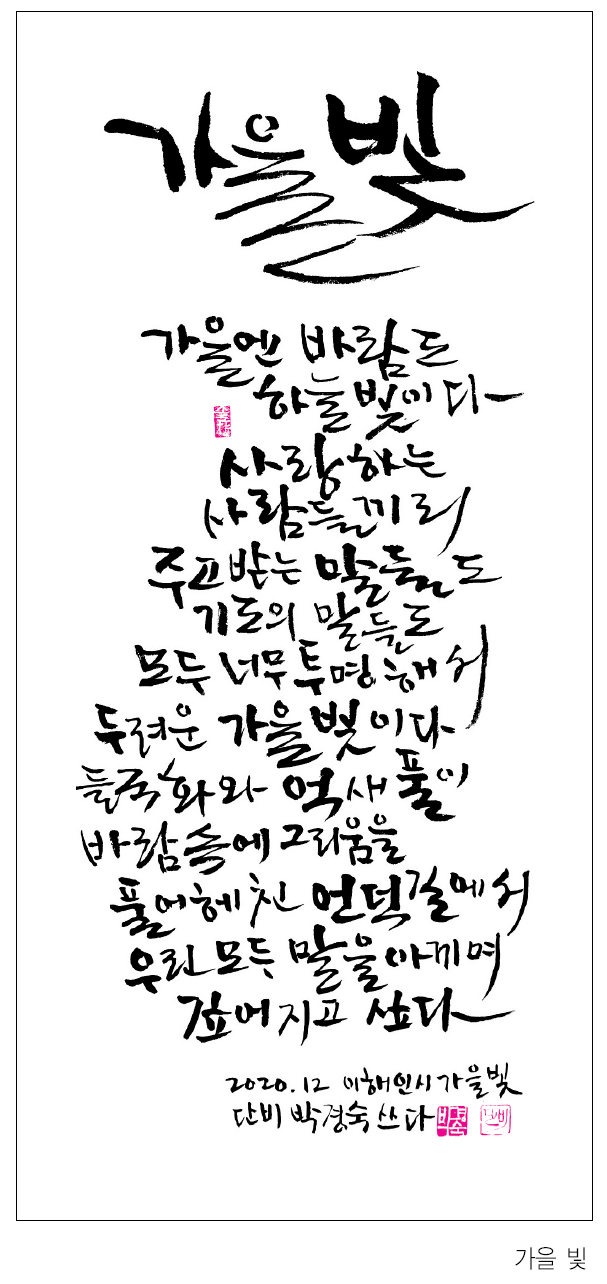 가을 빛
가을엔 바람도
하늘빛이다
사랑하는
사람들끼리
주고받는 말들도
기도의 말들도
모두 너무 투명해서
두려운 가을빛이다
들국화와 억새풀이
바람속에 그리움을
풀어헤친 언덕길에서
우린 모두 말을 아끼며
깊어지고 싶다
2020.12 이해인시 가을빛
단비 박경숙 쓰다
가을 빛